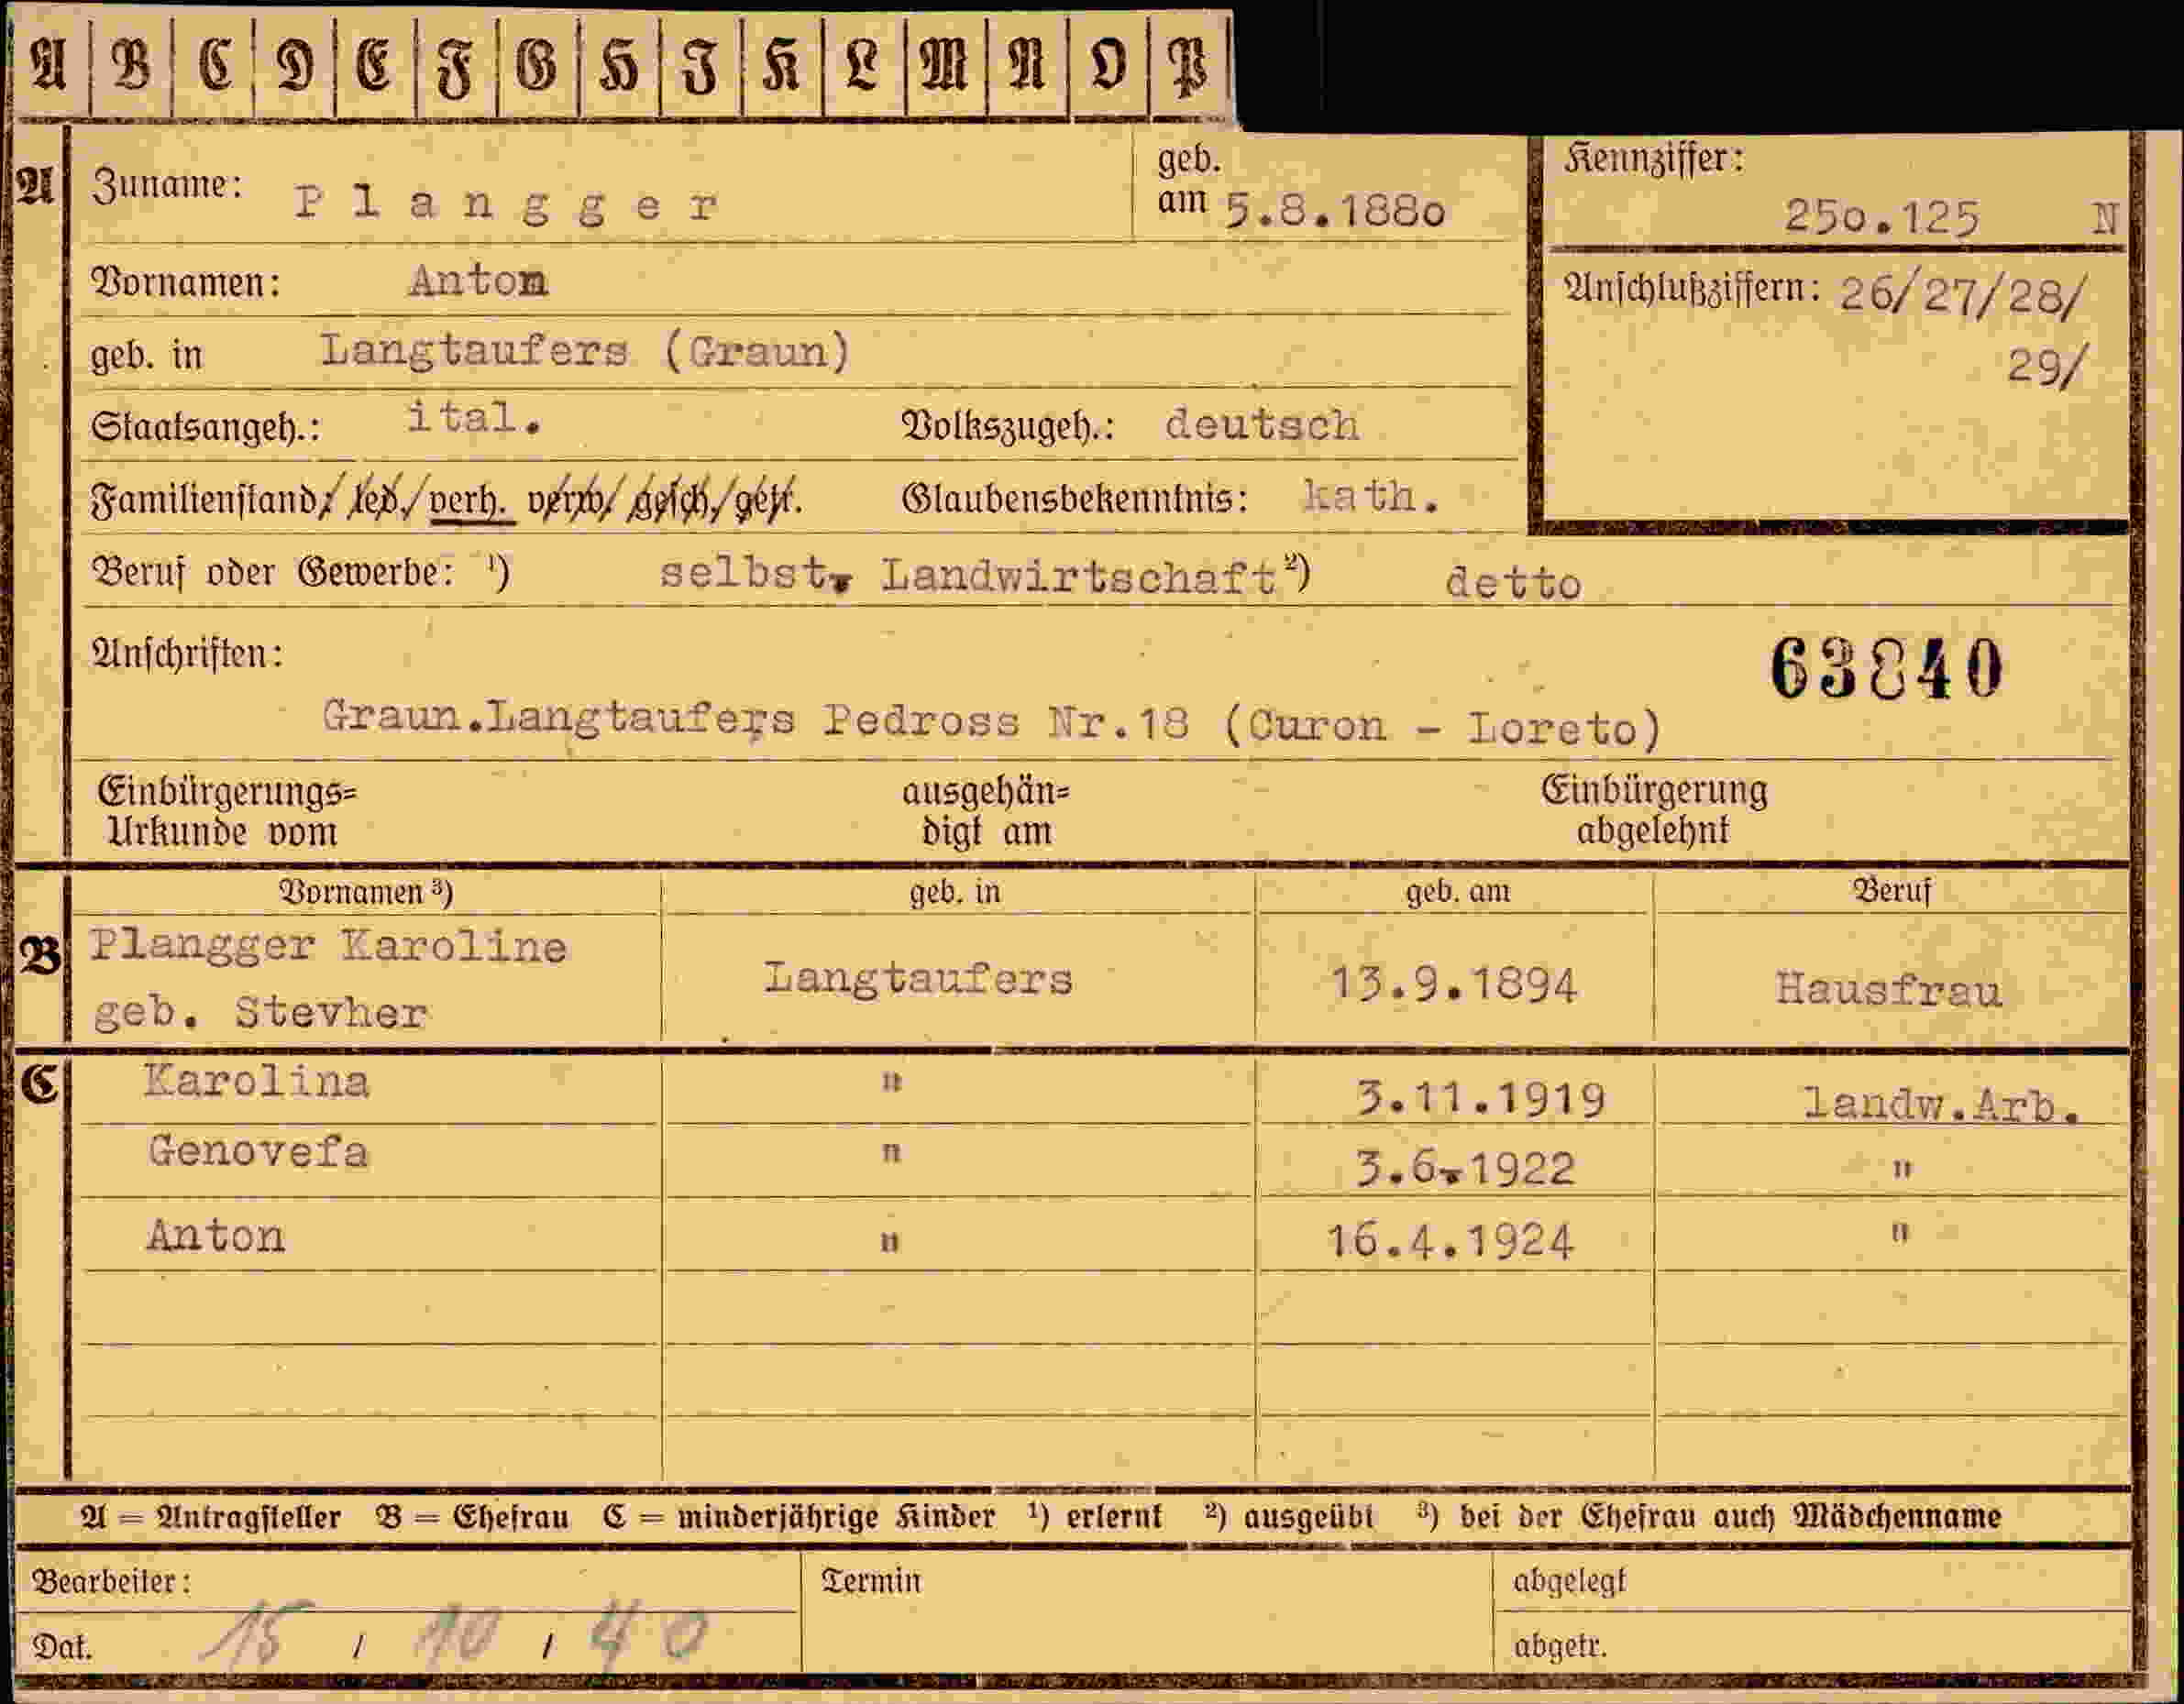 A B C D E F G H I K L M N O P
A Zuname: Plangger geb. am 5.8.1880 Kennziffer: 250.125 N
Vornamen: Anton Anschlußziffern: 26/27/28/
geb. in Langtaufers (Graun) 29/
Staatsangeh.: ital. Volkszugeh.: deutsch
Familienstand: led. verh. verw. gesch. getr. Glaubensbekenntnis: kath.
Beruf oder Gewerbe: ¹) selbst. Landwirtschaft ²) detto
Anschriften: 63840
Graun.Langtaufers Pedross Nr.18 (Curon - Loreto)
Einbürgerungs= ausgehän= Einbürgerung
Urkunde vom digt am abgelehnt
Vornamen ³) geb. in geb. am Beruf
B Plangger Karoline Langtaufers 13.9.1894 Hausfrau
geb. Stevher
C Karolina " 3.11.1919 landw.Arb.
Genovefa " 3.6.1922 "
Anton " 16.4.1924 "
A = Antragsteller B = Ehefrau C = minderjährige Kinder ¹) erlernt ²) ausgeübt ³) bei der Ehefrau auch Mädchenname
Bearbeiter: Termin abgelegt
Dat. 15 / 10 / 40 abgetr.